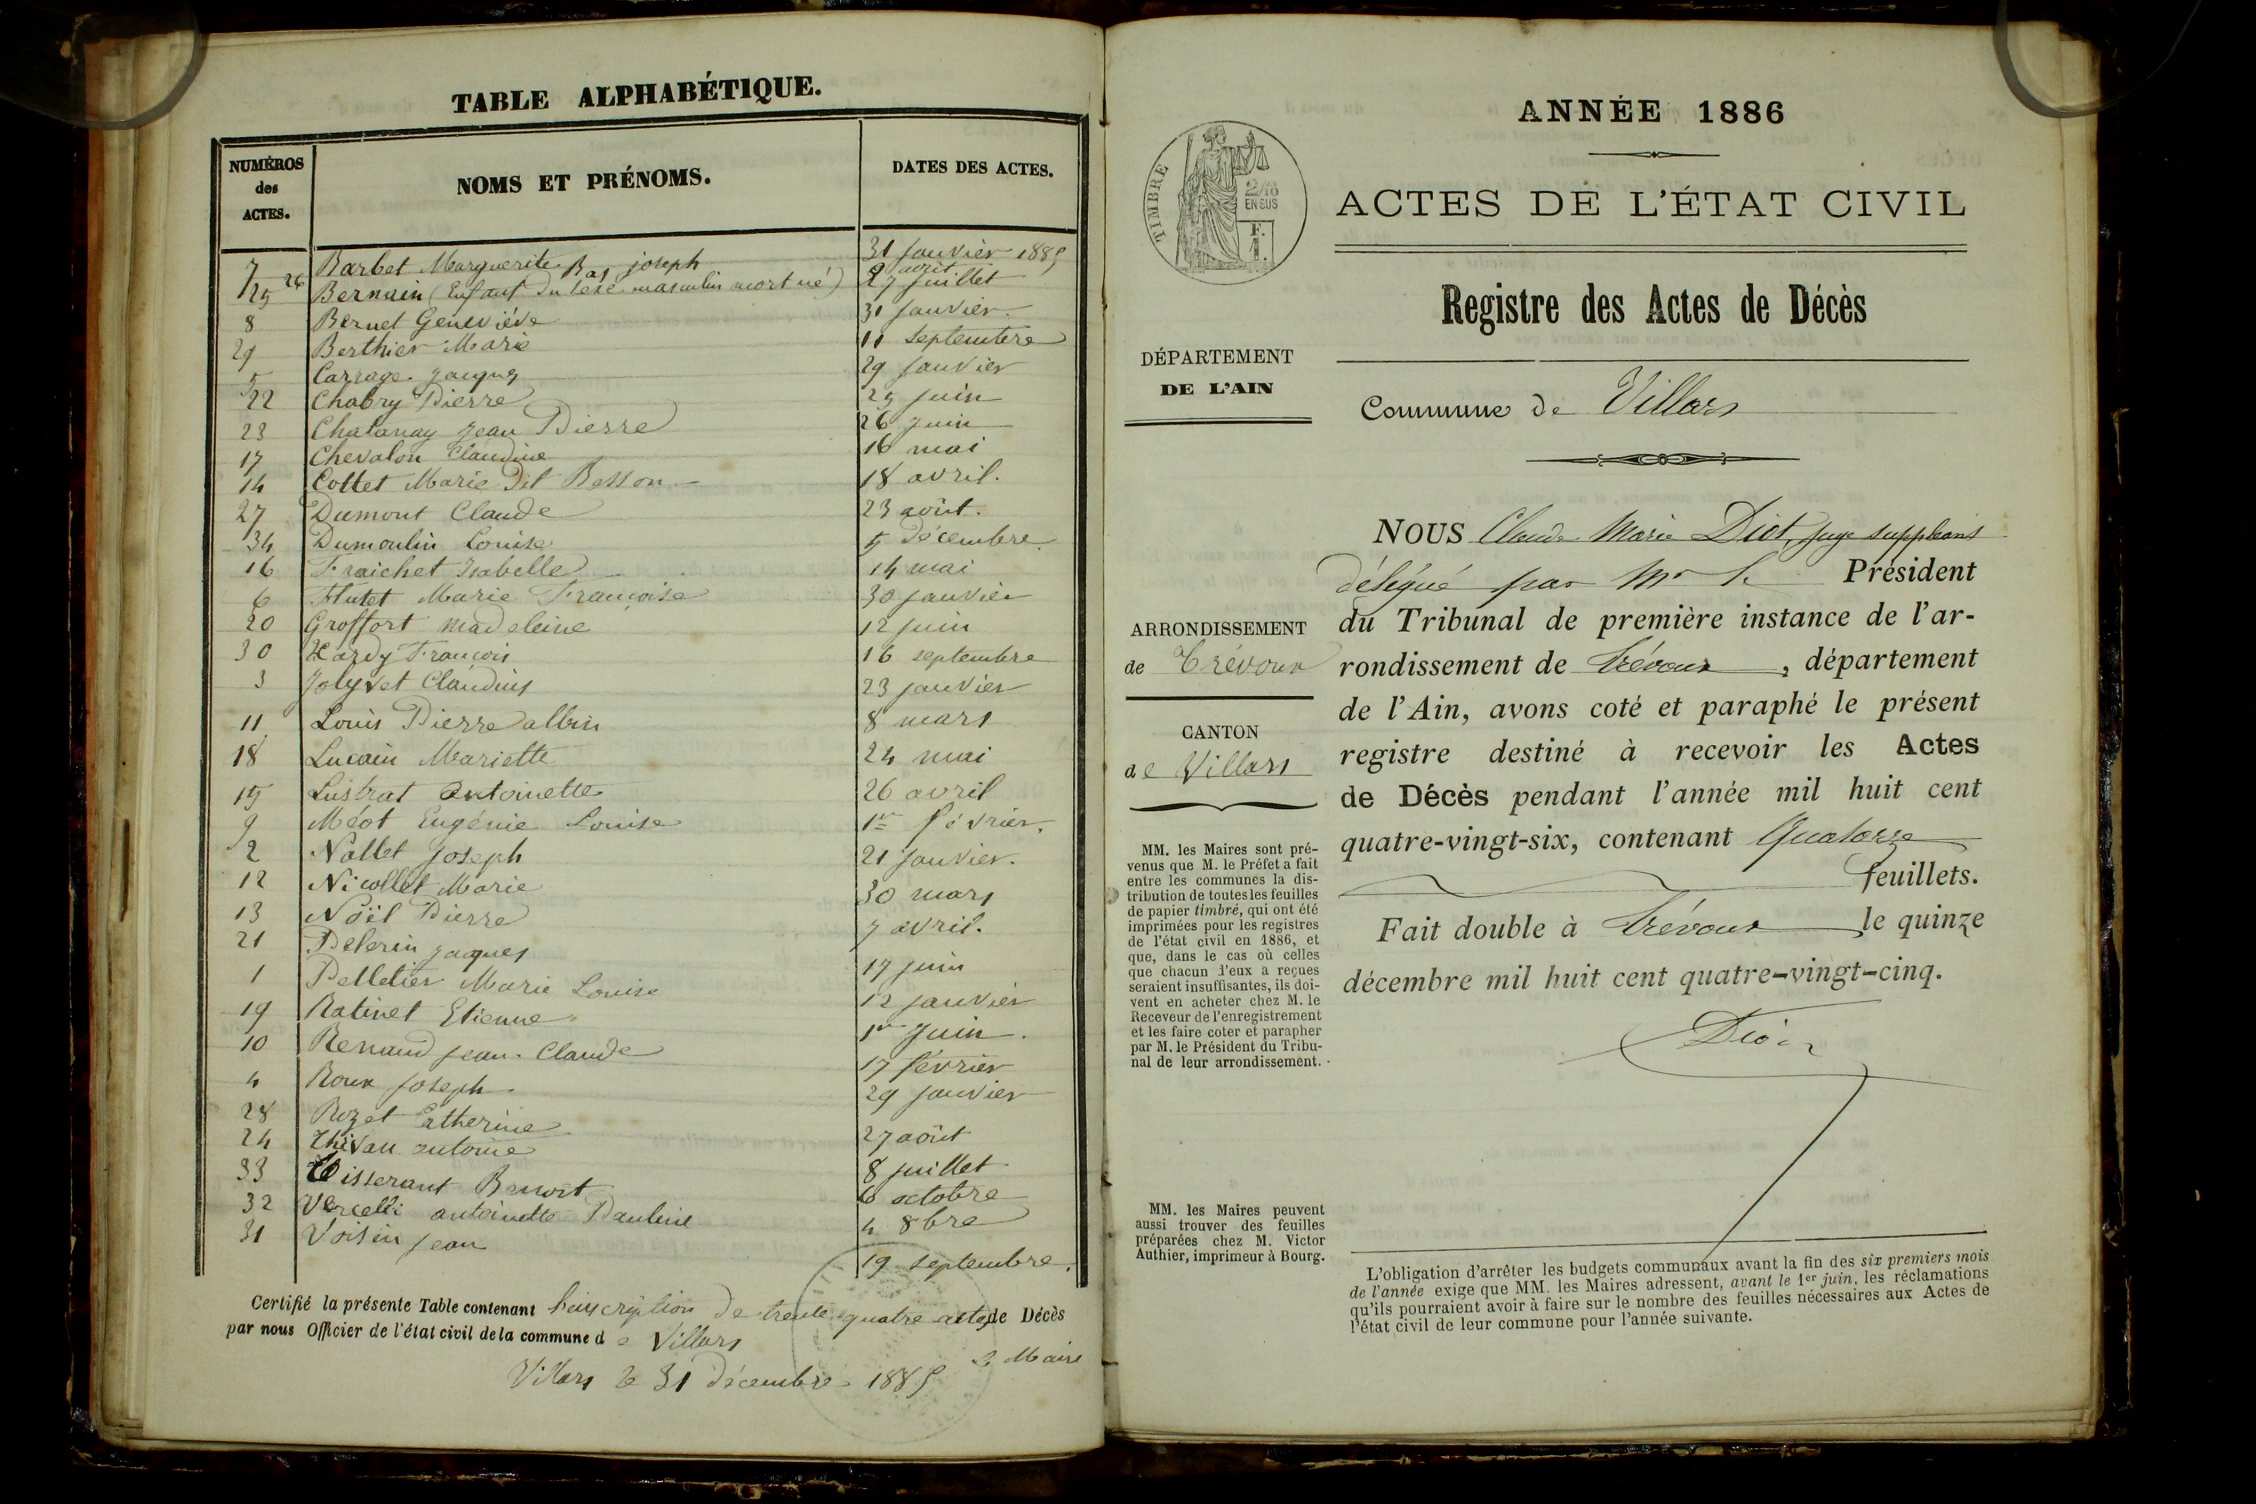 TABLE ALPHABÉTIQUE.
NUMÉROS des ACTES.
NOMS ET PRÉNOMS.
DATES DES ACTES.
7 Barbet Marguerite 31 janvier 1885
26 Bas joseph 9 août
25 Bernain (Enfant du sexe masculin mort né) 27 juillet
8 Bernet Geneviève 31 janvier.
29 Berthier Marie 11 septembre
5 Carrage Jacques 29 janvier
22 Chabry Pierre 25 juin
23 Chatanay Jean Pierre 26 juin
17 Chevalon Claudine 16 mai
14 Collet Marie dit Besson 18 avril.
27 Dumont Claude 23 août.
34 Dumoulin Louise 5 décembre.
16 Fraichet Isabelle 14 mai
6 Flutet Marie Françoise 30 janvier
20 Groffort Madeleine 12 juin
30 Hardy François 16 septembre
3 Jolyvet Claudius 23 janvier
11 Louis Pierre albin 8 mars
18 Lucain Mariette 24 mai
15 Lustrat Antoinette 26 avril
9 Méot Eugénie Louise 1er février.
2 Nallet Joseph 21 janvier.
12 Nicollet Marie 30 mars
13 Noël Pierre 7 avril.
21 Pelerin Jaques 17 juin
1 Pelletier Marie Louise 12 janvier
19 Ratinet Etienne 1er Juin.
10 Renaud Jean Claude 17 février
4 Roux Joseph 29 janvier
28 Rozet Catherine 27 août
24 Thivan antoine 8 juillet
33 Tisserant Benoit 6 octobre
32 Vercelli antoinette Pauline 4 8bre
31 Voisin Jean 19 septembre.
Certifié la présente Table contenant l'inscription de trente quatre actes de Décès
par nous Officier de l'état civil de la commune de Villars
Villars le 31 décembre 1885
Le Maire
ANNÉE 1886
TIMBRE
2/10 EN SUS
F. 1.
ACTES DE L'ÉTAT CIVIL
Registre des Actes de Décès
DÉPARTEMENT
DE L'AIN
Commune de Villars
NOUS Claude Marie Diot, juge suppléant
délégué par Mr le Président
du Tribunal de première instance de l'ar-
rondissement de Trévoux, département
de l'Ain, avons coté et paraphé le présent
registre destiné à recevoir les Actes
de Décès pendant l'année mil huit cent
quatre-vingt-six, contenant Quatorze
feuillets.
Fait double à Trévoux le quinze
décembre mil huit cent quatre-vingt-cinq.
Diot
ARRONDISSEMENT
de Trévoux
CANTON
de Villars
MM. les Maires sont pré-
venus que M. le Préfet a fait
entre les communes la dis-
tribution de toutes les feuilles
de papier timbré, qui ont été
imprimées pour les registres
de l'état civil en 1886, et
que, dans le cas où celles
que chacun d'eux a reçues
seraient insuffisantes, ils doi-
vent en acheter chez M. le
Receveur de l'enregistrement
et les faire coter et parapher
par M. le Président du Tribu-
nal de leur arrondissement.
MM. les Maires peuvent
aussi trouver des feuilles
préparées chez M. Victor
Authier, imprimeur à Bourg.
L'obligation d'arrêter les budgets communaux avant la fin des six premiers mois
de l'année exige que MM. les Maires adressent, avant le 1er juin, les réclamations
qu'ils pourraient avoir à faire sur le nombre des feuilles nécessaires aux Actes de
l'état civil de leur commune pour l'année suivante.